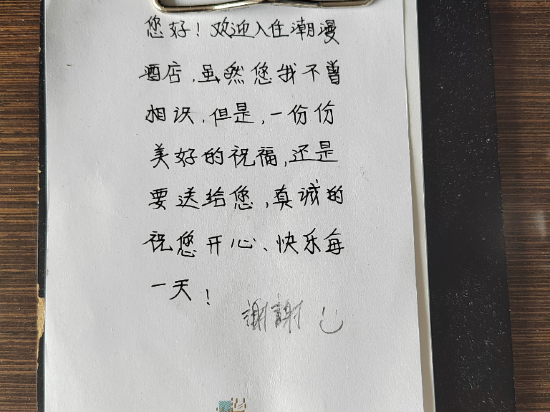 您好！欢迎入住潮漫
酒店，虽然您我不曾
相识，但是，一份份
美好的祝福，还是
要送给您，真诚的
祝您开心、快乐每
一天！
謝謝